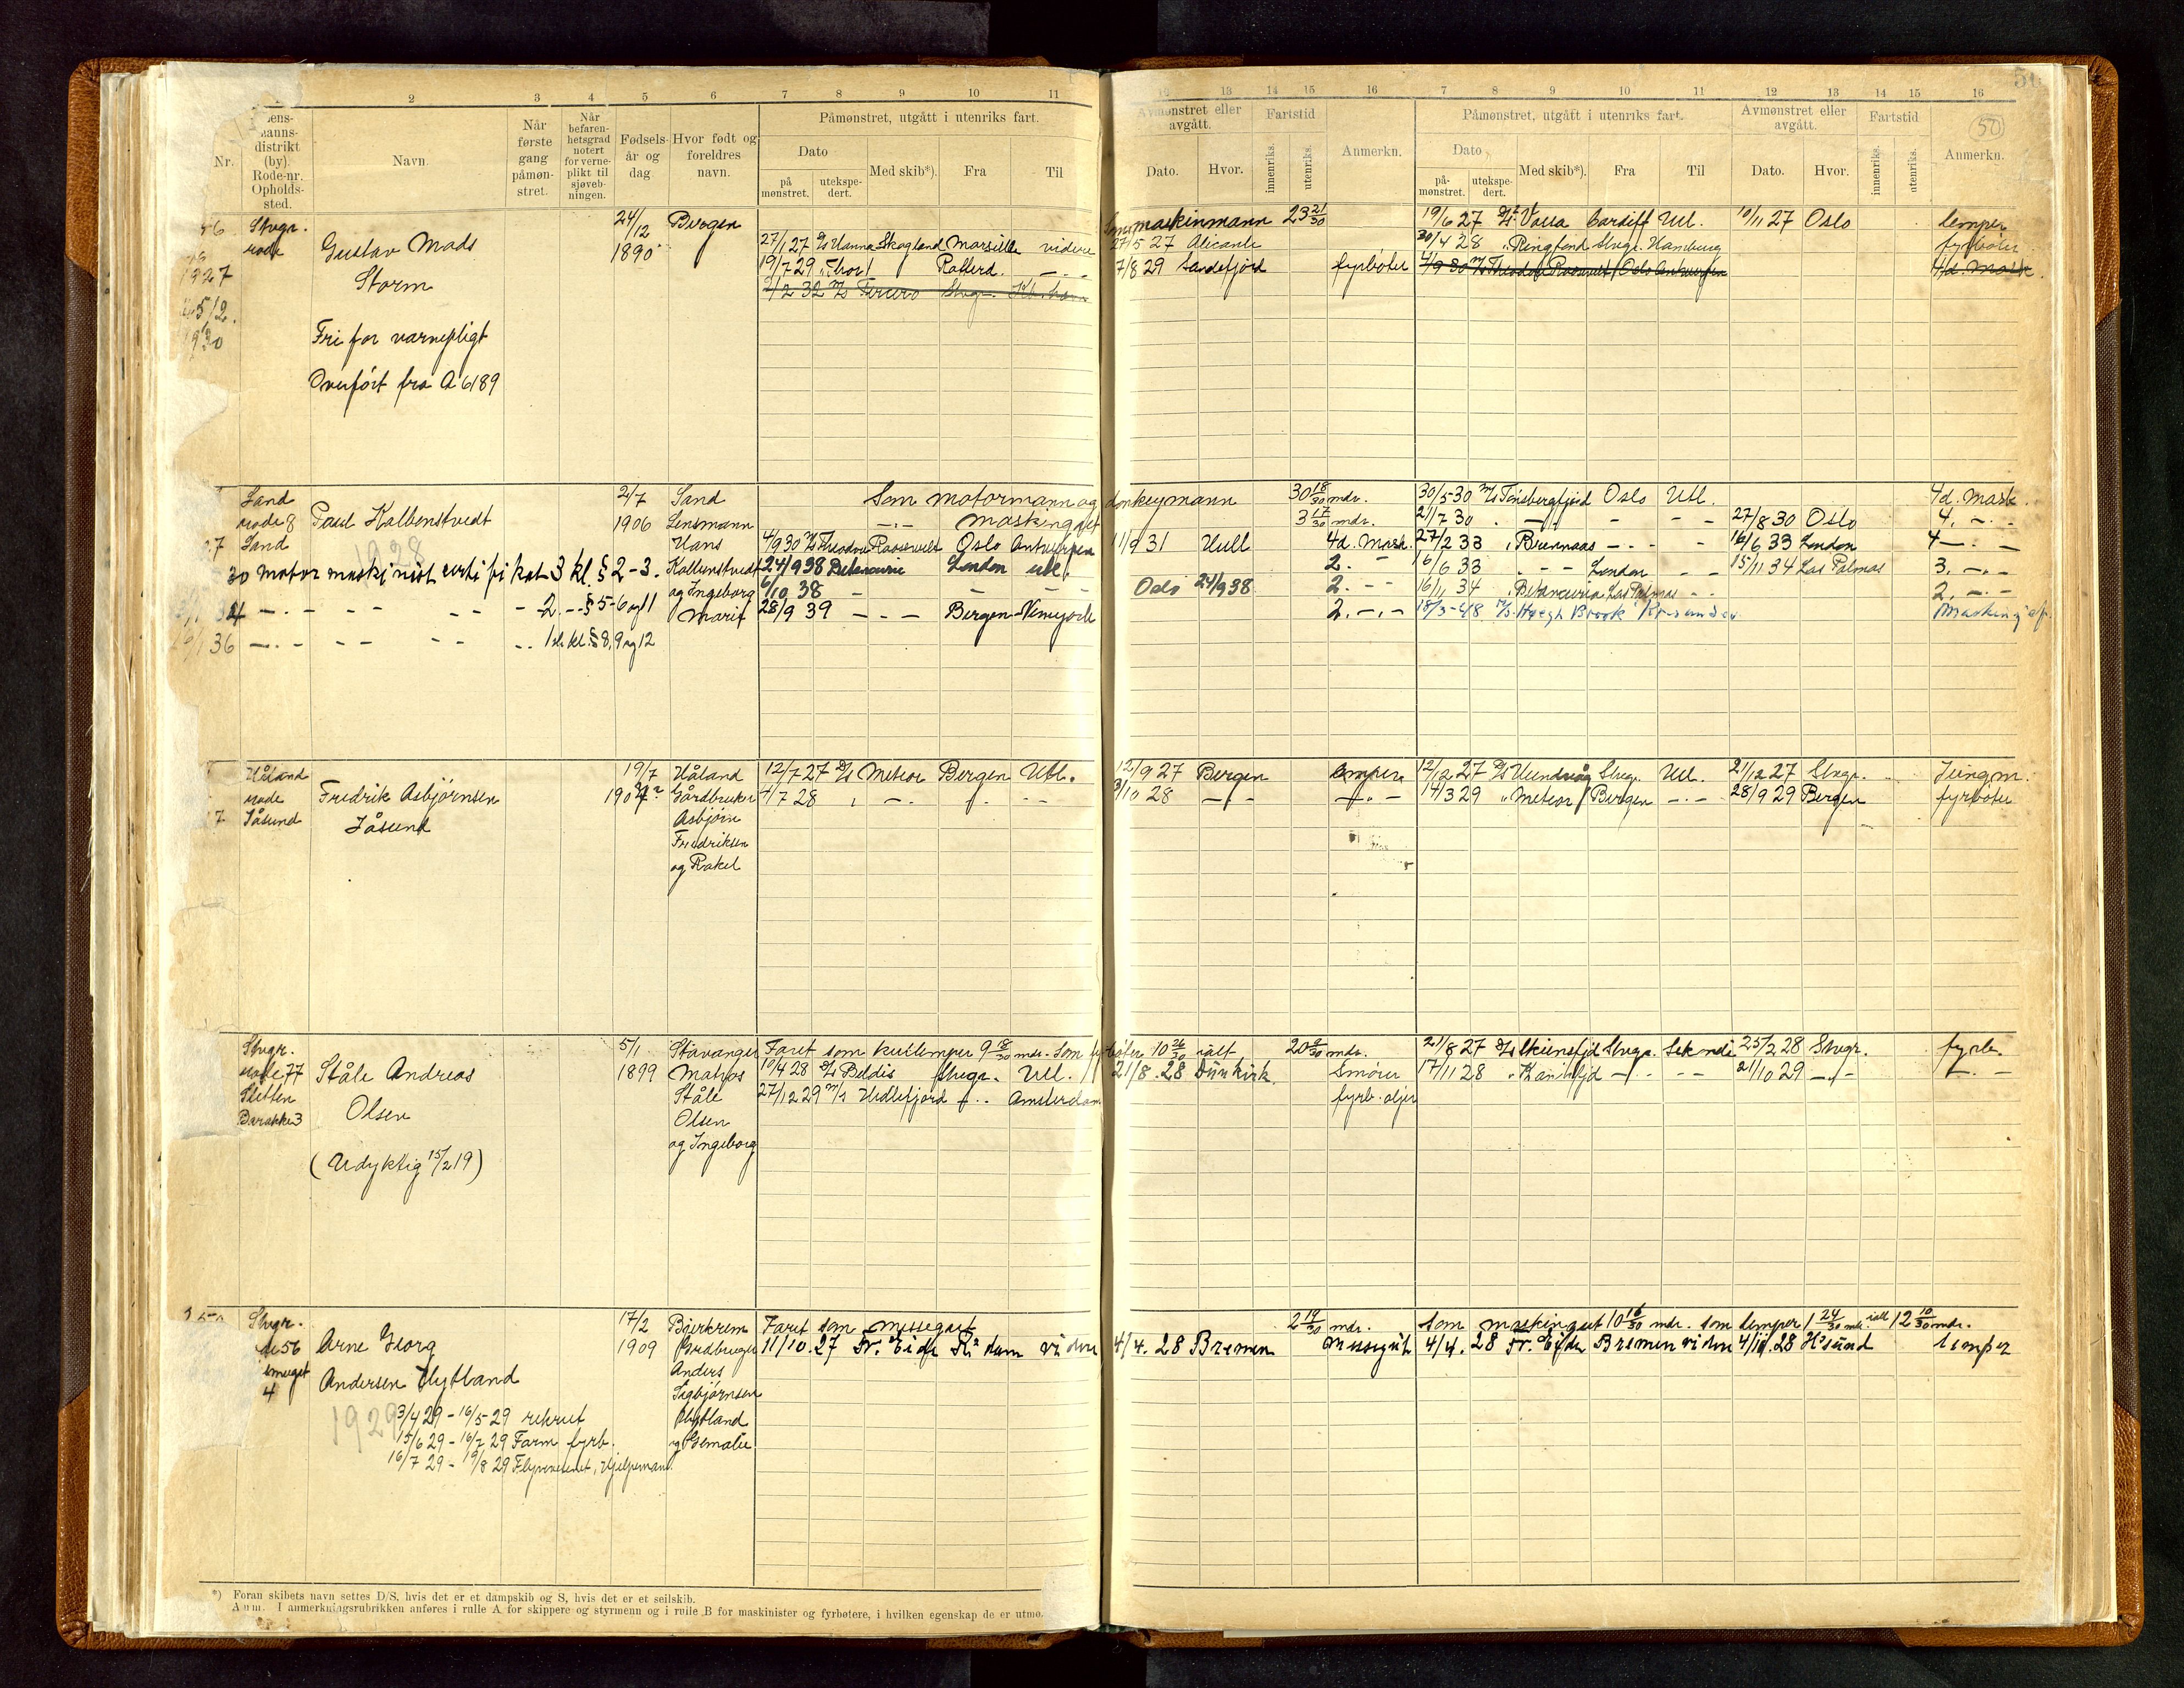 50
1 2 3 4 5 6 7 8 9 10 11
13 14 15 16 7 8 9 10 11 12 13 14 15 16
Nr.
manns-
distrikt
(by).
Rode-nr.
Opholds-
sted.
Navn
Når
første
gang
påmøn-
stret.
Når
befaren-
hetsgrad
notert
for verne-
plikt til
sjøveb-
ningen.
Fødsels-
år og
dag
Hvor født og
foreldres
navn.
Påmønstret, utgått i utenriks fart.
Dato
på
mønstret.
utekspe-
dert.
Med skib*).
Fra
Til
Avmønstret eller
avgått.
Dato.
Hvor.
Fartstid
innenriks.
utenriks.
Anmerkn.
Påmønstret, utgått i utenriks fart.
Dato
på-
mønstret.
utekspe-
dert.
Med skib*).
Fra
Til
Avmønstret eller
avgått.
Dato.
Hvor.
Fartstid
innenriks.
utenriks.
Anmerkn.
50
Stvgr.
rode
1927
1930
Gustav Mads
Storm
Fri for varnepligt
Overført fra A 6189
24/12
1890
Bergen
27/1 27 D/S Hanna Skogland Marseille videre
19/7 29 " Thor I Rotterd. — " —
2/2 32 M/S Tercero Stvgr.
maskinmann 23 21/30
27/5 27 Alicante
7/8 29 Sandefjord fyrbøter
19/6 27 D/S Vassa Cardiff Utl. 10/11 27 Oslo lemper
30/4 28 " Ringfond Stvgr. Hamburg fyrbøter
4/9 30 M/S Theodor Roosevelt Oslo Antwerpen 4d. Mask.
Sand
rode 8
Sand
Paul Kolbenstvedt
1928
30 motormaskinist certifikat 3 kl. § 2-3.
— " — - - - - 2. - - § 5-6 og 11
36 — " — - - - - 1ste kl. § 8, 9 og 12
2/7
1906
Sand
Lensmann
Hans
Kolbenstvedt
og Ingeborg
Marit
Som motormann og donkeymann 30 18/30 mdr.
— " — maskingutt 3 17/30 mdr.
4/9 30 M/S Theodor Roosevelt Oslo Antwerpen 11/9 31 Hull 4d. Mask.
24/9 38 Betancuria London utl. 2. -
6/10 38 — — — Oslo 24/9 38 2. - -
28/9 39 — - — Bergen Newyork 2. - " -
30/5-30 M/S Tønsbergfjord Oslo Utl. 4d. Mask.
21/7 30 — " — - - - 27/8 30 Oslo 4. — " —
27/2 33 " Brennaas — - - - 16/6 33 London 4 — " —
16/6 33 - - - London - - 15/11 34 Las Palmas 3. — " —
16/11 34 " Betancuria Las Palmas - - 2. — " —
18/3-48 M/S Høegh Brook Kr.sund
Håland
rode
Jåsund
Fredrik Asbjørnsen
Jåsund
19/7
1907
Håland
Gårdbruker
Asbjørn
Fredriksen
og Rakel
12/7 27 D/S Meteor Bergen Utl. 12/9 27 Bergen lemper
4/7 28 " — " — 3/10 28 — " — — " —
12/12 27 D/S Hundvåg Stvgr. Utl. 21/12 27 Stvgr. Jungm.
14/3 29 " Meteor Bergen — " — 28/9 29 Bergen fyrbøter
Stvgr.
rode 77
Sletten
Barakke 3
Ståle Andreas
Olsen
(Udyktig 15/2 19)
5/1
1899
Stavanger
Matros
Ståle
Olsen
og Ingeborg
Faret som kullemper 9 8/30 mdr. Som fyrbøter 10 26/30 ialt 20 4/30 mdr.
10/4 28 D/S Beldis Stvgr. Utl. 21/8 28 Dünkirk Smører
27/12 29 M/S Hidlefjord — " — Amsterdam fyrb. oljer
21/8 27 D/S Skiensfjd Stvgr. Sekondi 25/2 28 Stvgr. fyrb.
17/11 28 " Ranenfjd — " — - - 21/10 29 — " — — " —
Stvgr.
56
smuget
4
Arne Georg
Andersen Hytland
1929
3/4 29 - 16/5-29 rekrut
15/6 29 - 16/7 29 Farm fyrb.
16/7 29 - 19/8 29 Flyvevesenet, Hjelpemann
17/2
1909
Bjerkrem
Gårdbruger
Anders
Sigbjørnsen
Hytland
og Somalie
Faret som messegut 2 19/30 mdr. som maskingut 10 16/30 mdr. som lemper 1 24/30 mdr. ialt 12 10/30 mdr.
11/10.27 Fr. Eide R'dam videre 4/4. 28 Bremen messegut 4/4. 28 Fr. Eide Bremen videre 4/11.28 H'sund lemper
*) Foran skibets navn settes D/S, hvis det er et dampskib og S, hvis det er et seilskib.
Anm. I anmerkningsrubrikken anføres i rulle A for skippere og styrmenn og i rulle B for maskinister og fyrbøtere, i hvilken egenskap de er utmø.